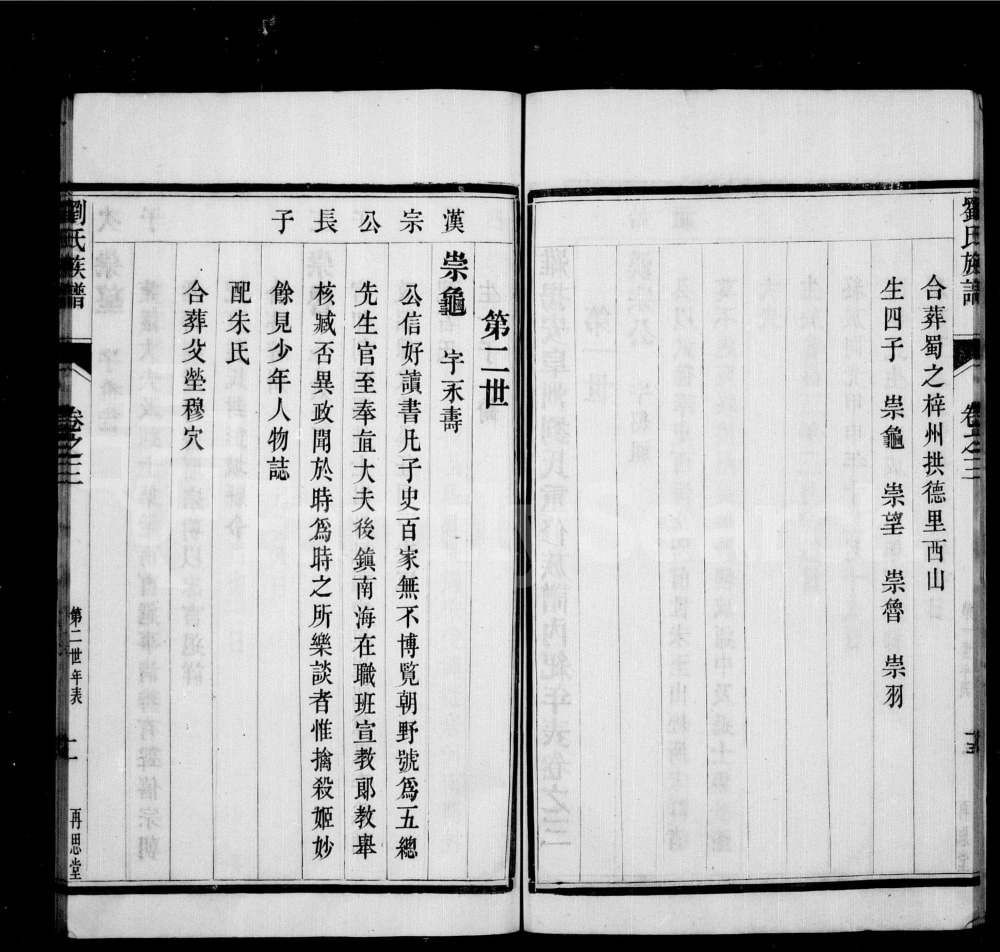 劉氏族譜
卷之三
合葬蜀之梓州拱德里西山
生四子 崇龜 崇望 崇魯 崇羽
第二世
漢宗公長子
崇龜 字永壽
公信好讀書凡子史百家無不博覽朝野號爲五總
先生官至奉直大夫後鎮南海在職班宣教郎教舉
核臧否異政聞於時爲時之所樂談者惟擒殺姬妙
餘見少年人物誌
配朱氏
合葬父塋穆穴
劉氏族譜
卷之三
第二世年表
再思堂